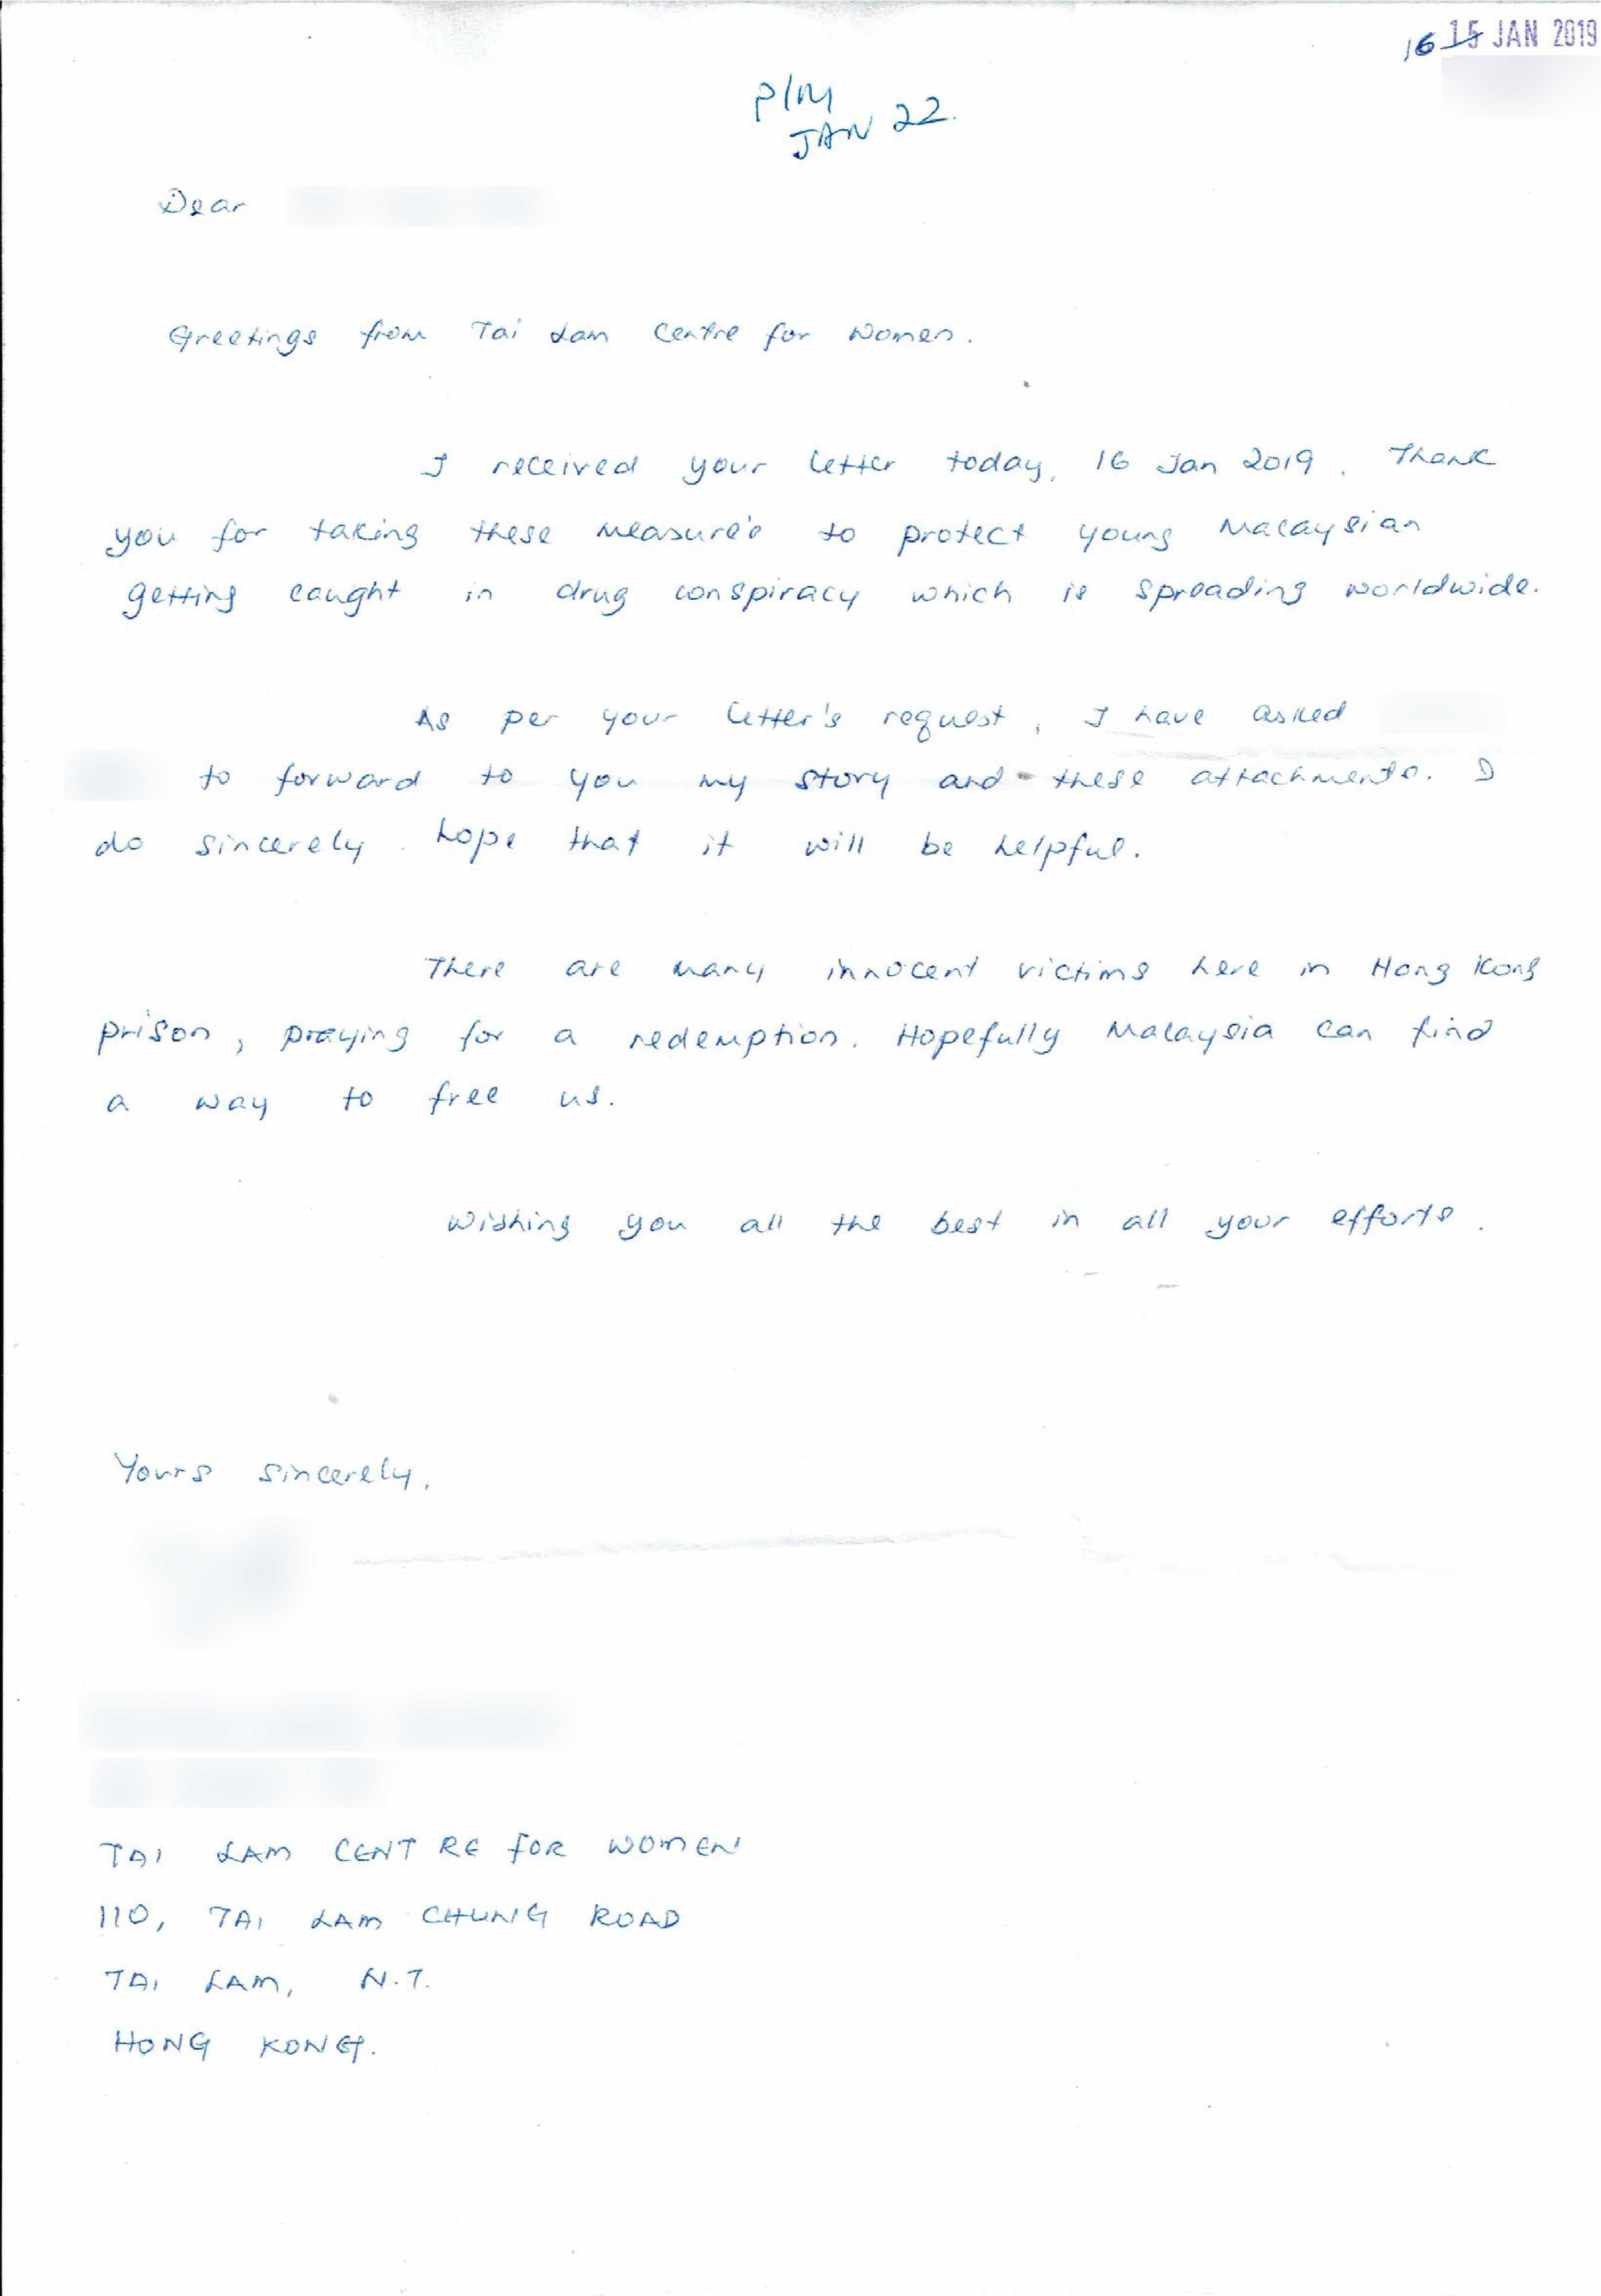 16 15 JAN 2019
P/M
JAN 22.
Dear
Greetings from Tai Lam Centre for Women.
I received your letter today, 16 Jan 2019. Thank
you for taking these measures to protect young Malaysian
getting caught in drug conspiracy which is spreading worldwide.
As per your letter's request, I have asked
to forward to you my story and these attachments. I
do sincerely hope that it will be helpful.
There are many innocent victims here in Hong Kong
prison, praying for a redemption. Hopefully Malaysia can find
a way to free us.
Wishing you all the best in all your efforts.
Yours sincerely,
TAI LAM CENTRE FOR WOMEN
110, TAI LAM CHUNG ROAD
TAI LAM, N.T.
HONG KONG.